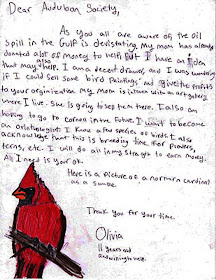 Dear Audubon Society,
As you all are aware of the oil
spill in the Gulf is devistating, my mom has already
donated alot of money to help, but I have an idea
that may also help. I am a decent drawer, and I was wondering
if I could sell some bird paintings and give the profits
to your organization. My mom is in with an art gallery
where I live. She is going to sell them there. I also am
hoping to go to cornell in the future. I want to become
an ornithologist I know a few species of birds I also
acknowledge that this is breeding time for plovers,
terns, etc. I will do all in my strength to earn money.
All I need is your ok.
Here is a picture of a northern cardinal
as a sample.
Thank you for your time.
Olivia
11 years old
and willing to help.